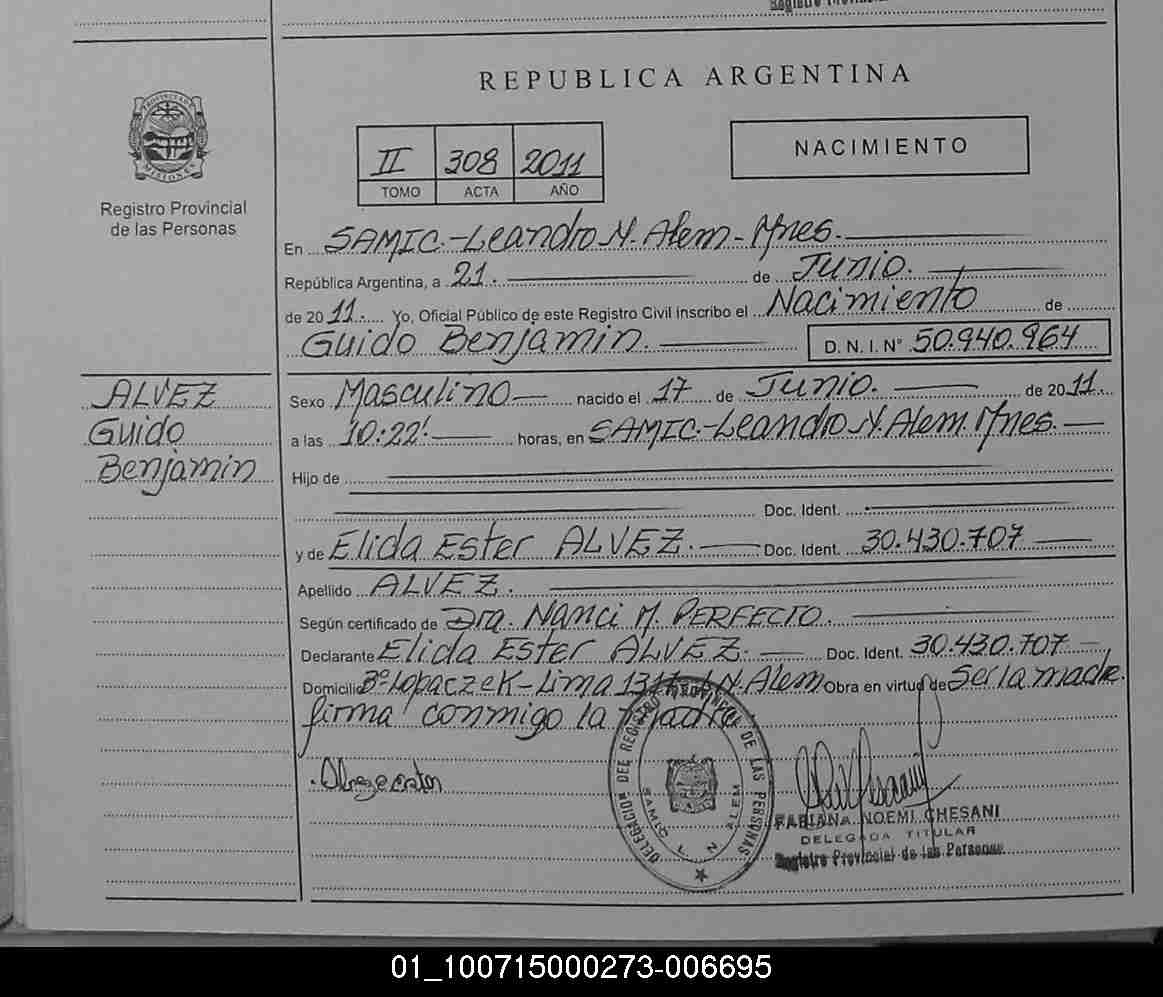 Registro Provincial
REPUBLICA ARGENTINA
PROVINCIA DE MISIONES
II 308 2011
TOMO ACTA AÑO
NACIMIENTO
Registro Provincial
de las Personas
En SAMIC.-Leandro N. Alem-Mnes.
República Argentina, a 21. de Junio.
de 2011. Yo, Oficial Público de este Registro Civil inscribo el Nacimiento de
Guido Benjamin. D. N. I. N° 50.940.964
ALVEZ
Guido
Benjamin
Sexo Masculino nacido el 17 de Junio. de 2011.
a las 10:22' horas, en SAMIC.-Leandro N. Alem Mnes.
Hijo de
Doc. Ident.
y de Elida Ester ALVEZ. Doc. Ident. 30.430.707
Apellido ALVEZ.
Según certificado de Dra. Nanci M. PERFECTO.
Declarante Elida Ester ALVEZ. Doc. Ident. 30.430.707
Domicilio B° Lopaczek-Lima L.N. Alem Obra en virtud de Ser la madre.
firma conmigo la madre
DELEGACION DEL REGISTRO PROVINCIAL DE LAS PERSONAS
SAMIC L. N. ALEM
FABIANA NOEMI CHESANI
DELEGADA TITULAR
Registro Provincial de las Personas
01_100715000273-006695